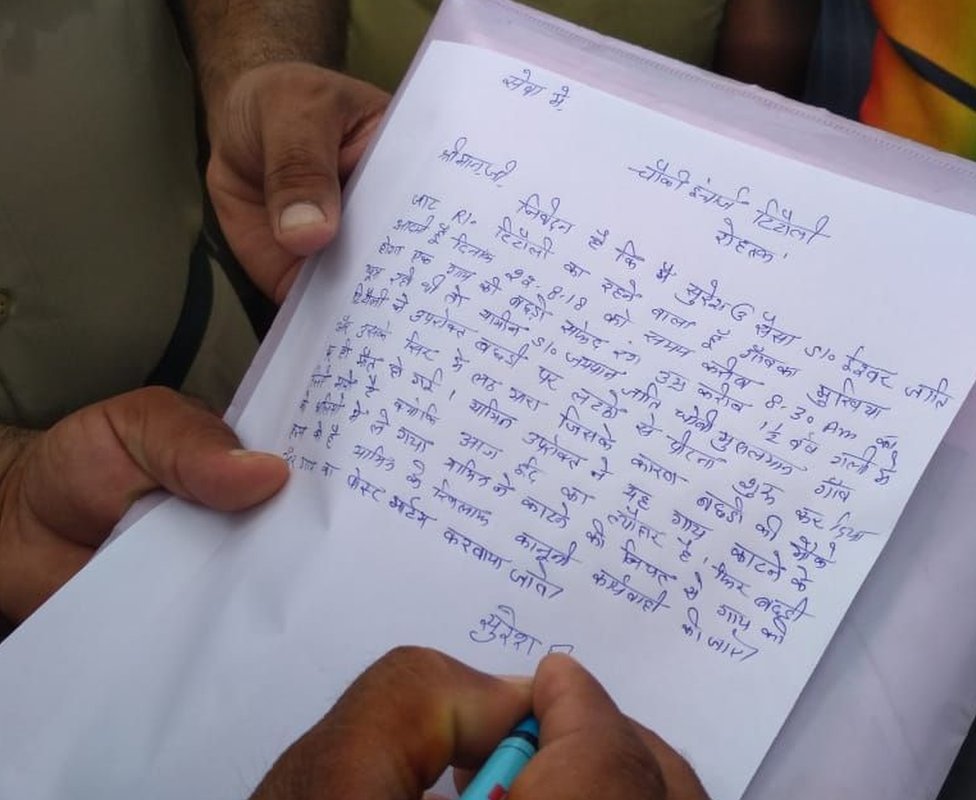 सेवा में,
चौकी इंचार्ज टिटौली
रोहतक
श्रीमान जी,
निवेदन है कि मैं सुरेश S/o ईश्वर जाति
जाट R/o टिटौली का रहने वाला हूँ गाँव का मुखिया
आदमी हूँ दिनांक 22-8-18 को समय करीब 8-30 Am की
एक गाय की बछडी सफेद रंग उम्र करीब 1½ वर्ष गली में
घूम रही थी तो यामीन S/o जाति धोबी मुसलमान गाँव
टिटौली ने उपरोक्त बछडी पर लठों से पीटना शुरू कर दिया
और उसके सिर में लठ मारा जिसके कारण बछडी की मौके
पर ही मौत हो गई। यामिन उपरोक्त ने यह गाय काटने के
लिये है क्योंकि आज ईद का त्यौहार है। फिर बछडी
को में ले गया यामिन ने काटने की नियत से गाय को
है यामिन के खिलाफ कानूनी कार्यवाही की जावे।
और गाय का पोस्ट मार्टम करवाया जावे।
सुरेश